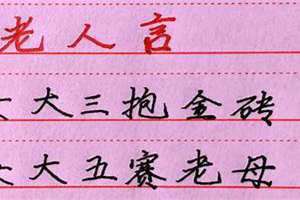 老人言
女大三抱金砖
女大五赛老母